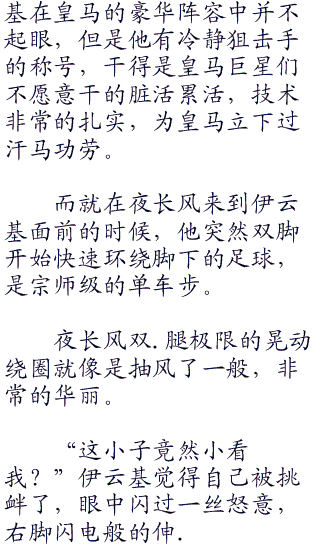 基在皇马的豪华阵容中并不
起眼，但是他有冷静狙击手
的称号，干得是皇马巨星们
不愿意干的脏活累活，技术
非常的扎实，为皇马立下过
汗马功劳。
而就在夜长风来到伊云
基面前的时候，他突然双脚
开始快速环绕脚下的足球，
是宗师级的单车步。
夜长风双.腿极限的晃动
绕圈就像是抽风了一般，非
常的华丽。
“这小子竟然小看
我？”伊云基觉得自己被挑
衅了，眼中闪过一丝怒意，
右脚闪电般的伸.